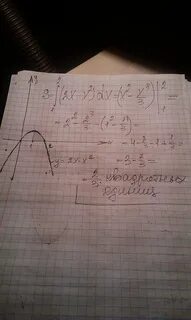 S = ∫₁² (2x - x²) dx = (x² - x³/3) |₁² =
= 2² - 2³/3 - (1² - 1³/3)
= 4 - 8/3 - 1 + 1/3 =
y = 2x - x²
= 2/3 квадратных
единиц